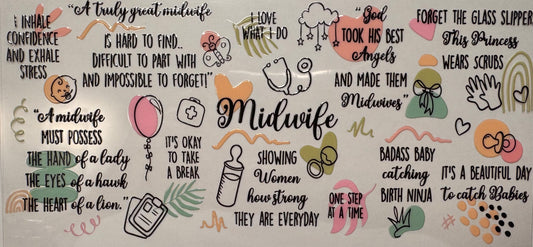 I INHALE
CONFIDENCE
AND EXHALE
STRESS
"A truly great midwife
IS HARD TO FIND..
DIFFICULT TO PART WITH
AND IMPOSSIBLE TO FORGET!"
I LOVE
WHAT I DO
"God
TOOK HIS BEST
Angels
AND MADE THEM
Midwives"
FORGET THE GLASS SLIPPER
This Princess
WEARS SCRUBS
"A midwife
MUST POSSESS
THE HAND of a lady
THE EYES of a hawk
THE HEART of a lion."
IT'S OKAY
TO TAKE
A BREAK
Midwife
SHOWING
Women
how strong
THEY ARE EVERYDAY
ONE STEP
AT A TIME
BADASS BABY
catching
BIRTH NINJA
IT'S A BEAUTIFUL DAY
to catch Babies